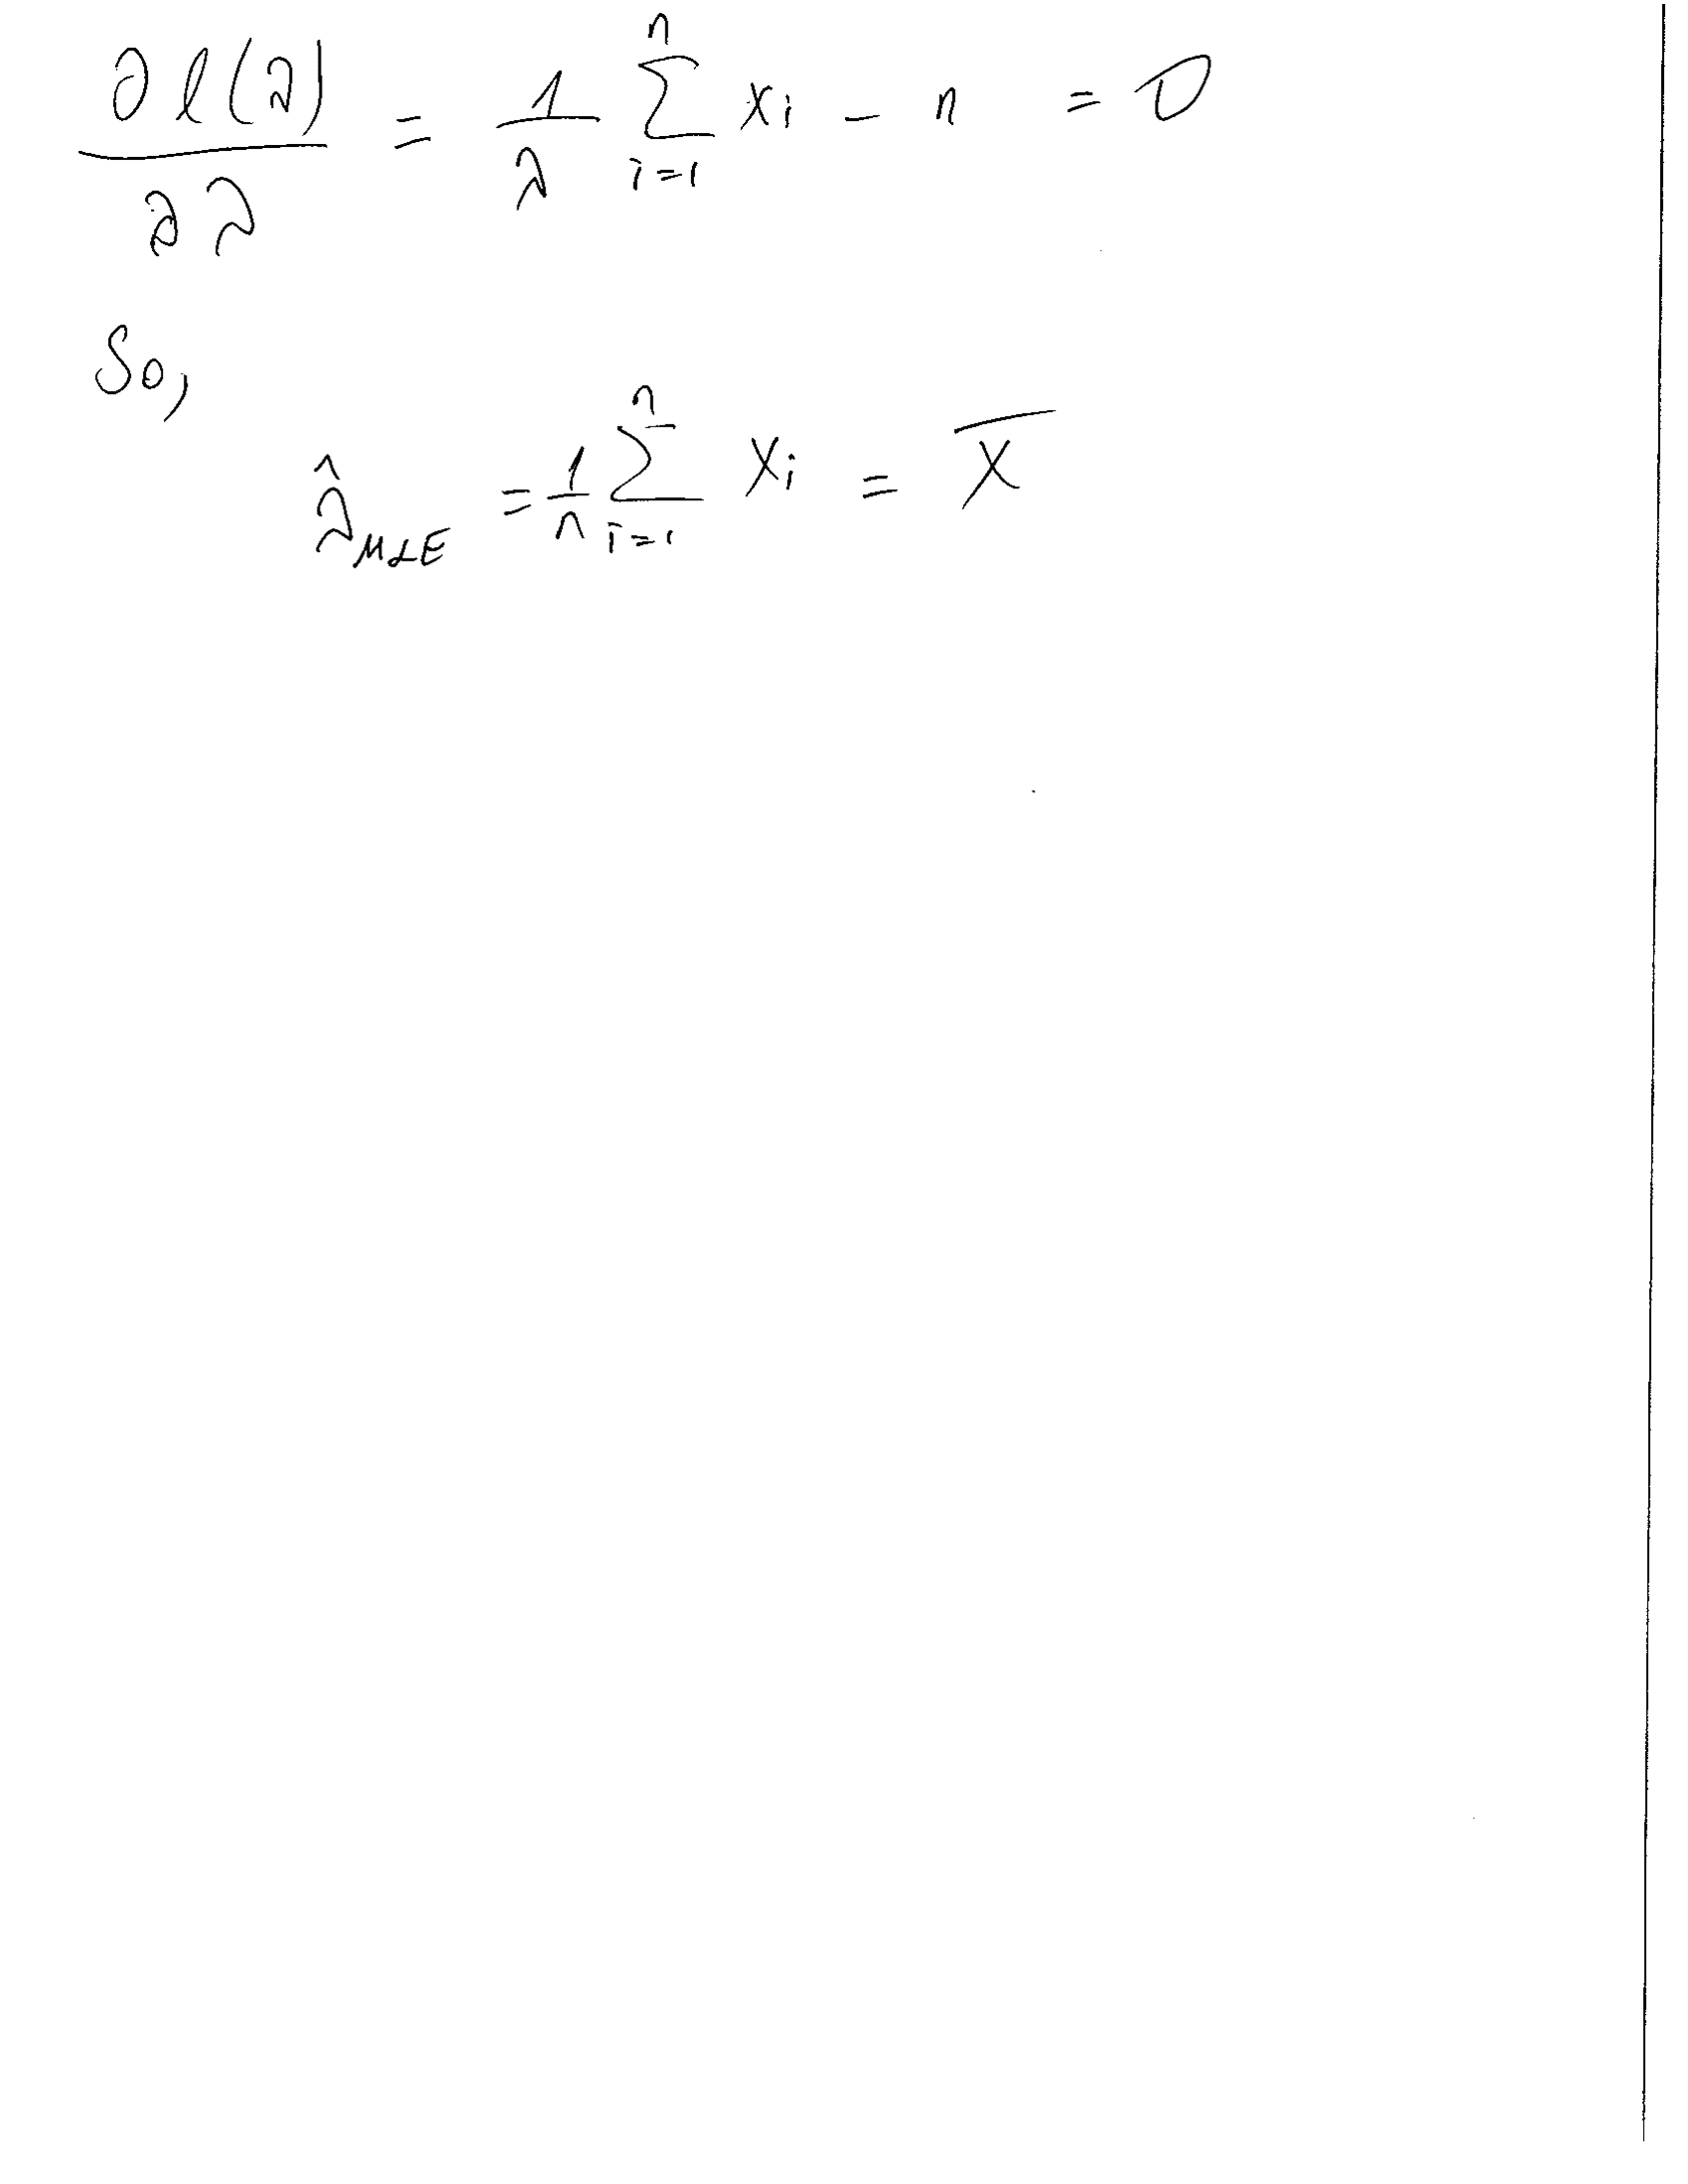 ∂ℓ(λ)/∂λ = 1/λ ∑_{i=1}^{n} xi - n = 0
So,
λ̂_MLE = 1/n ∑_{i=1}^{n} Xi = X̄